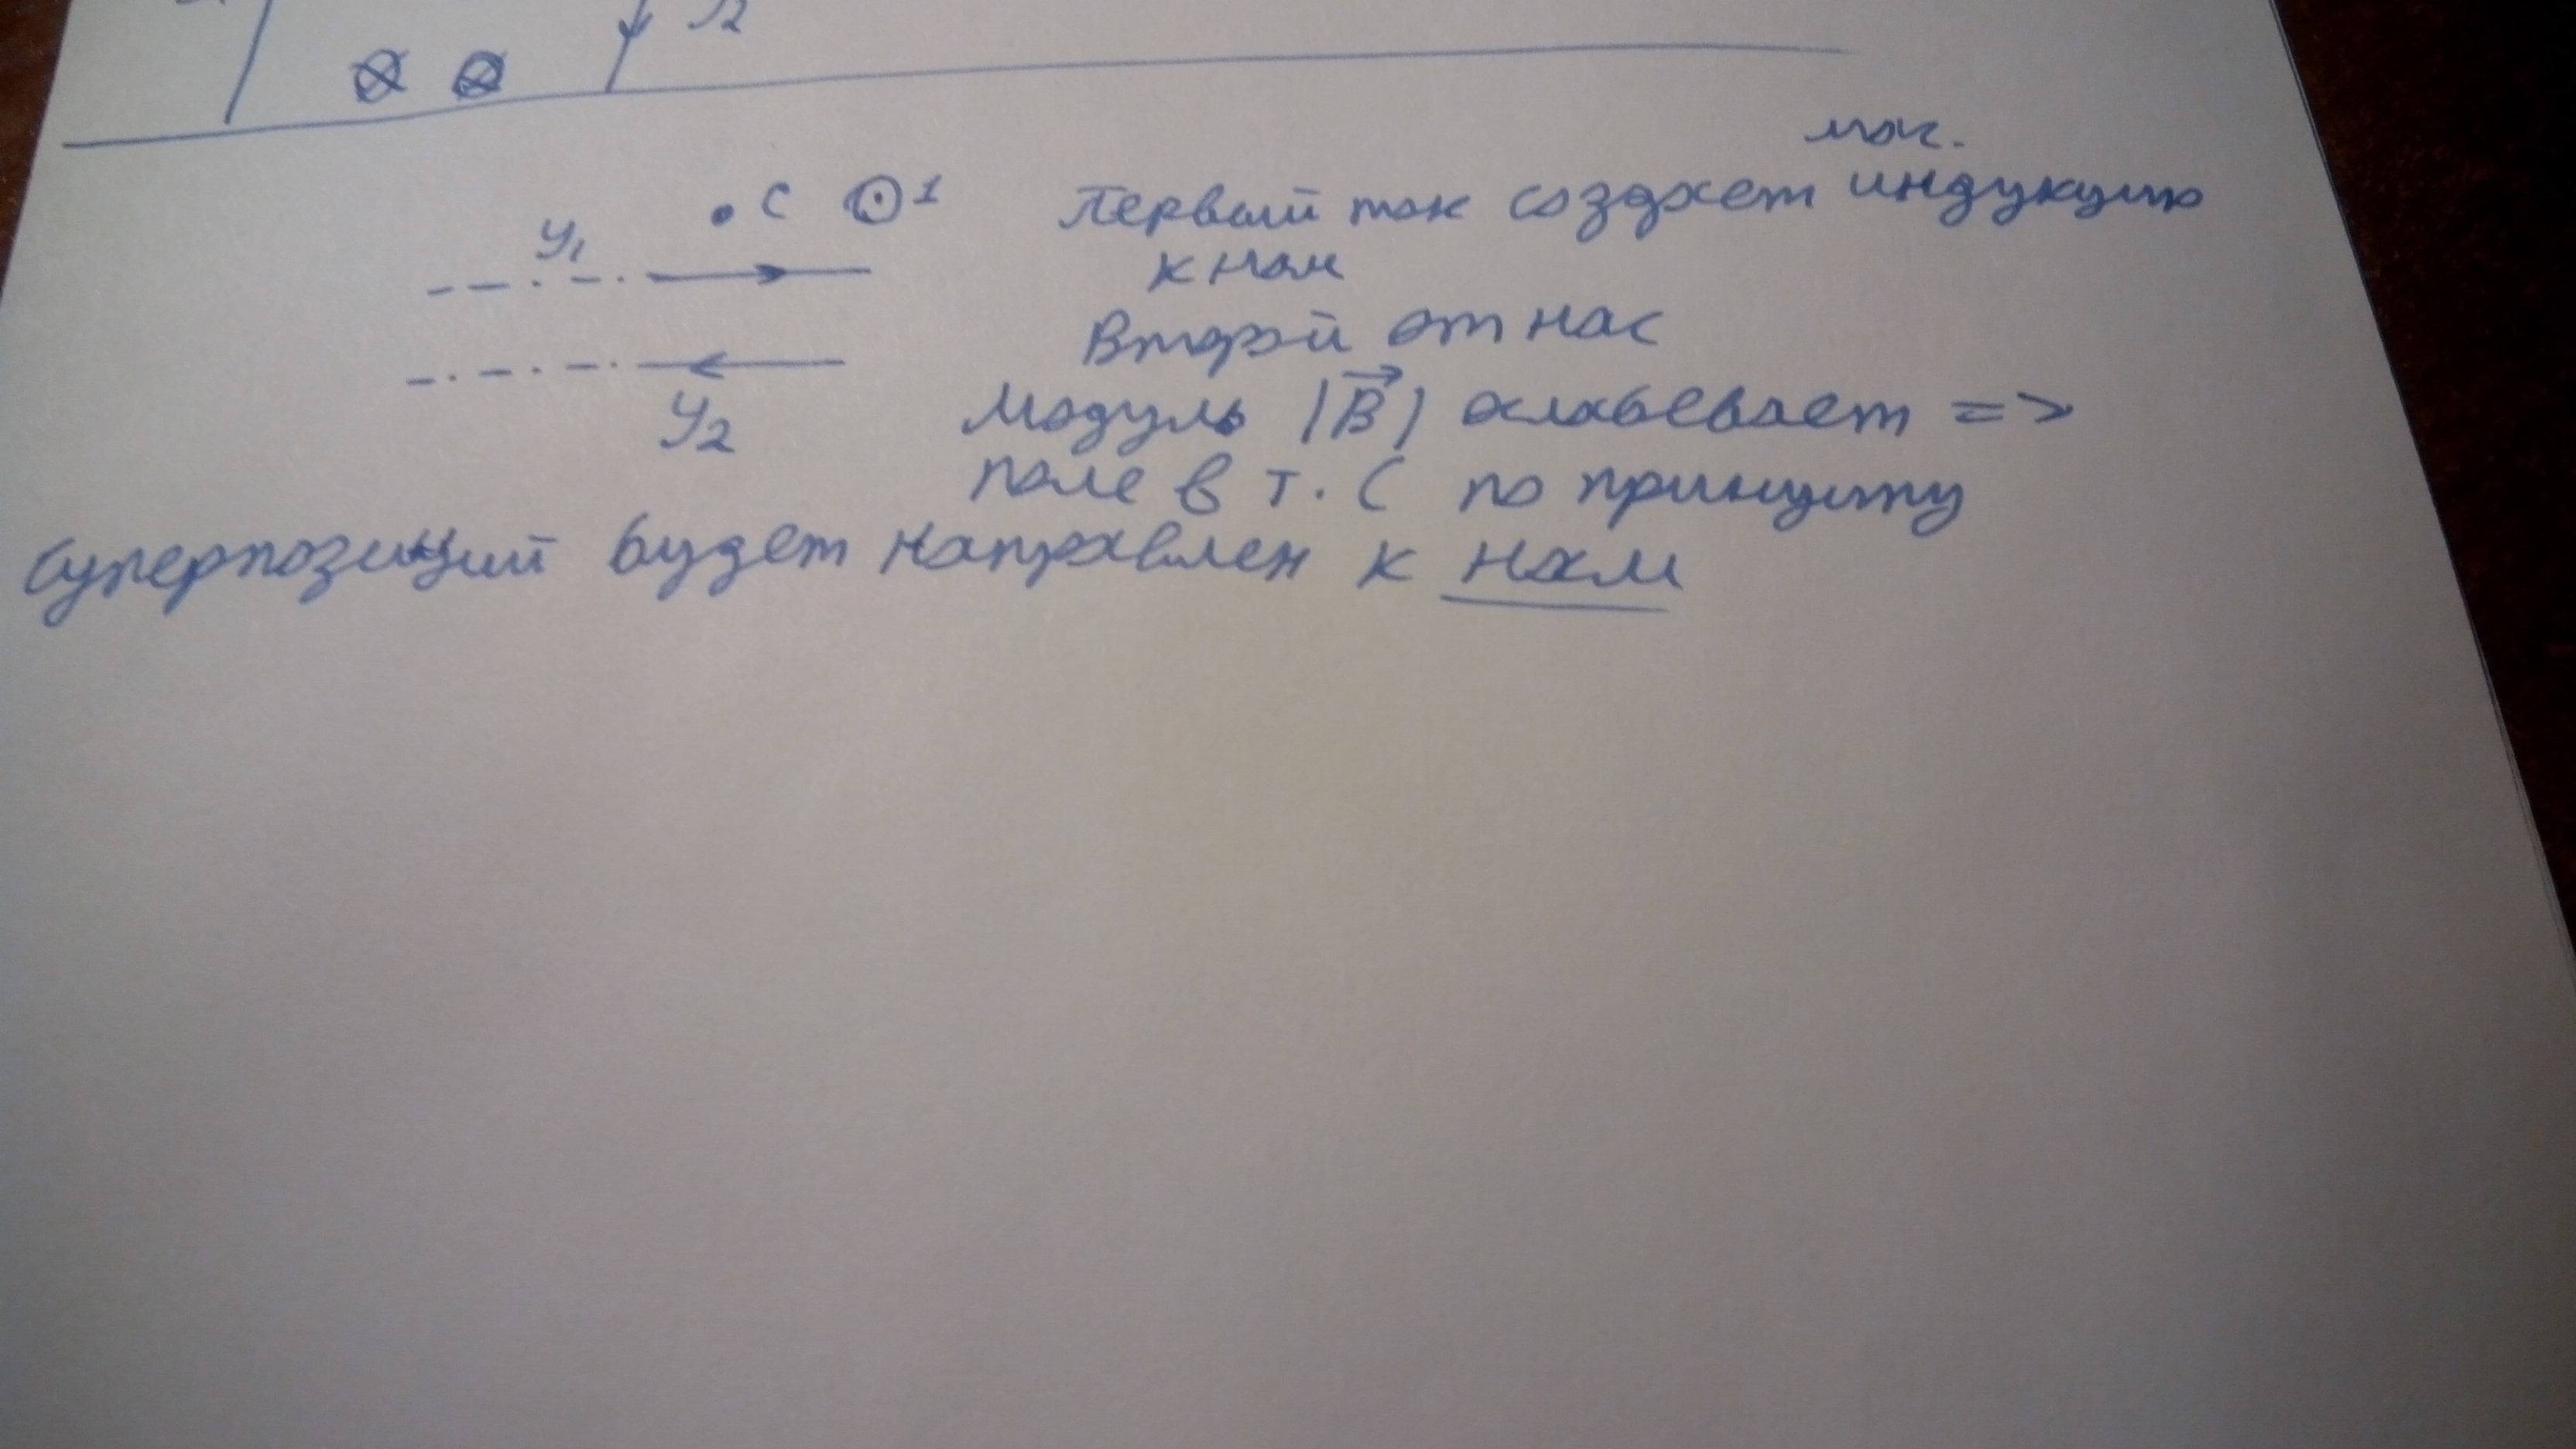 • C ⊙ 1
маг.
Первый ток создает индукцию
к нам
У1
Второй от нас
У2
Модуль |B| ослабевает =>
поле в т. С по принципу
суперпозиций будет направлен к нам